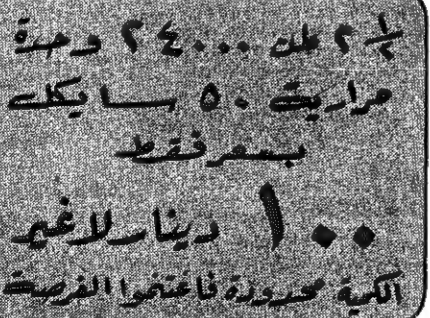 ٢ ١/٢ طن ٢٤٠٠٠ وحدة
حرارية ٥٠ سايكل
بسعر فقط
١٠٠ دينار لا غير
الكمية محدودة فاغتنموا الفرصة